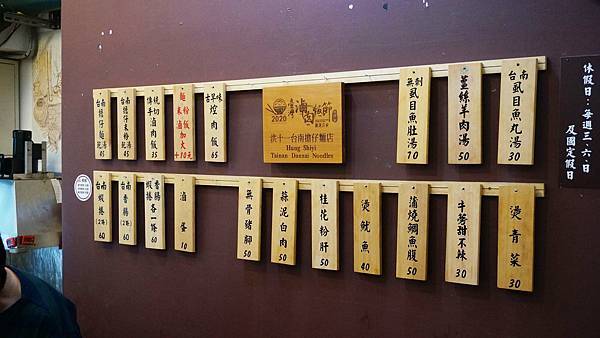 台南擔仔麵 乾湯 45
台南擔仔米粉 乾湯 45
傳統手切滷肉飯 35
麵粉飯米滷加大 +10元
古早味焢肉飯 65
2020 臺灣滷肉飯節
洪十一台南擔仔麵店
Hung Shiyi
Tainan Danzai Noodles
無刺虱目魚肚湯 70
薑絲羊肉湯 50
台南虱目魚丸湯 30
休假日：每週三、六、日
及國定假日
台南蝦捲(2條) 60
台南香腸(2條) 60
香腸蝦捲各一條 60
滷蛋 10
無骨豬腳 50
蒜泥白肉 50
桂花粉肝 50
燙魷魚 40
蒲燒鯛魚腹 50
牛蒡甜不辣 30
燙青菜 30